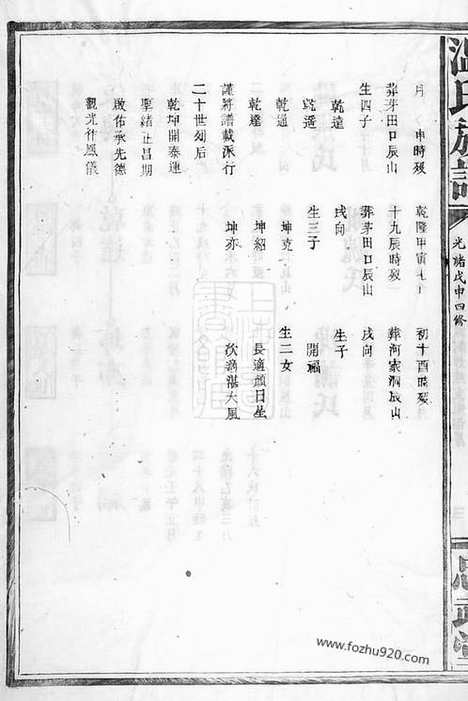 族譜
光緒戊申四修
月 申時殁 乾隆甲寅七 初十酉時殁
葬芽田口辰山 十九辰時殁 葬河家洞辰山
生四子 葬芽田口辰山 戌向
乾達 戌向 生子
乾遥 生三子 開福
乾通 坤克 生二女
乾達 坤紹 長適顔日星
謹将譜載派行 坤亦 次適湛大風
二十世刎后
乾坤開泰運
聖緒正昌期
啟佑承先德
觀光作鳳儀
www.fozhu920.com